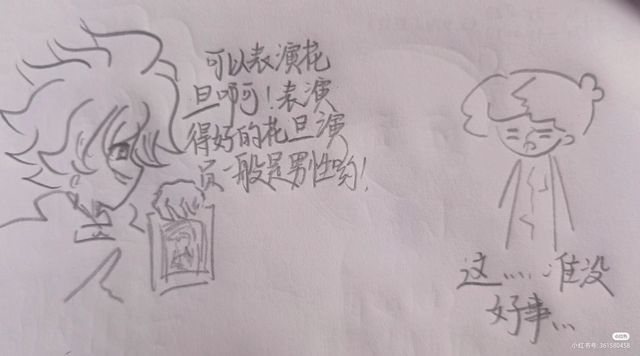 可以表演花
旦啊！表演
得好的花旦演
员一般是男性哟！
这……准没
好事…
小红书
小红书号: 361580458